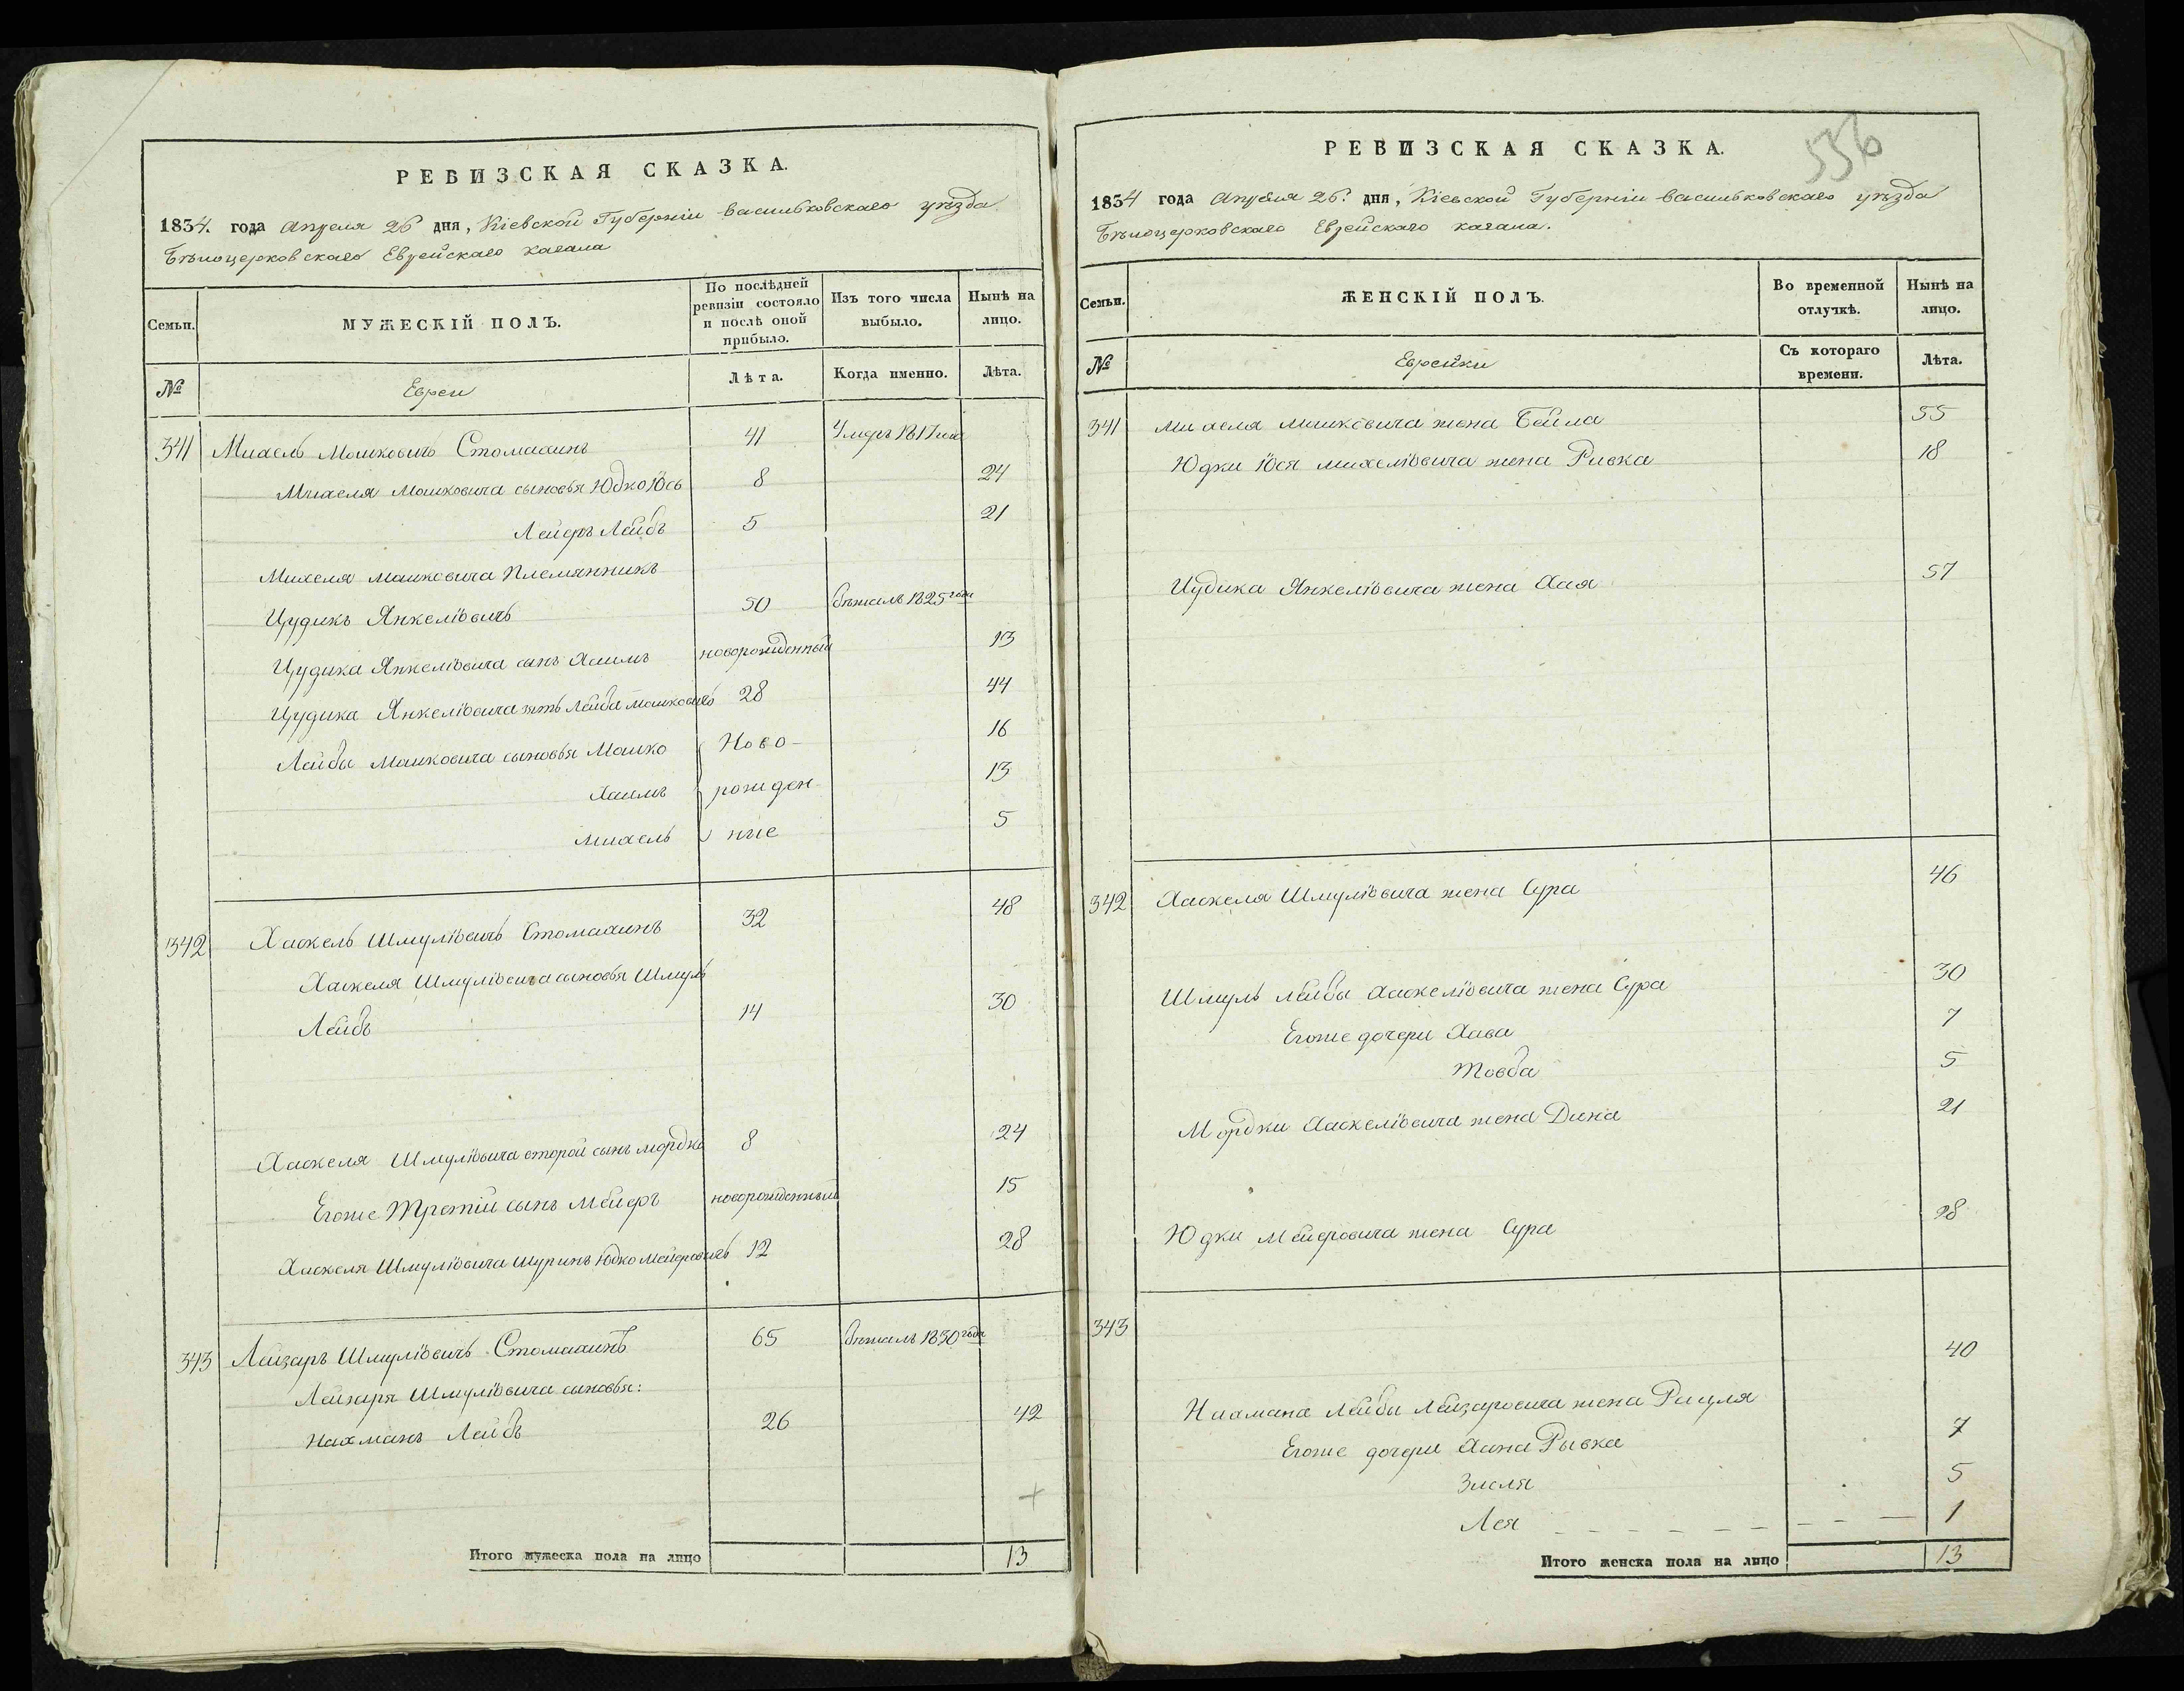 РЕВИЗСКАЯ СКАЗКА.
1834. года Апреля 26 дня, Кіевской Губерніи Васильковскаго уѣзда
Бѣлоцерковскаго Еврейскаго Кагала
Семьи.
МУЖЕСКІЙ ПОЛЪ.
По послѣдней ревизіи состояло и послѣ оной прибыло.
Изъ того числа выбыло.
Нынѣ на лицо.
№
Евреи
Лѣта.
Когда именно.
Лѣта.
341 Михель Мошковичь Стомахинъ 41 Умеръ 1817 года
Михеля Мошковича сыновья Юдко Юсь 8 24
Лейбъ 5 21
Михеля Мошковича Племянникъ
Цудикъ Янкеліовичь 50 бѣжалъ 1825 года
Цудика Янкеліовича сынъ Хаимъ новорожденный 13
Цудика Янкеліовича зять Лейба Мошковичь 28 44
Лейбы Мошковича сыновья Мошко Ново- 16
Хаимъ рожден- 13
Михель ные 5
342 Хаскель Шмуліовичь Стомахинъ 32 48
Хаскеля Шмуліовича сыновья Шмуль
Лейбъ 14 30
Хаскеля Шмуліовича второй сынъ Мордко 8 24
Егоже Третій сынъ Мейеръ новорожденный 15
Хаскеля Шмуліовича Шуринъ Юдко Мейеровичь 12 28
343 Лейзаръ Шмуліовичь Стомахинъ 65 бѣжалъ 1830 года
Лейзаря Шмуліовича сыновья:
Нахманъ Лейбъ 26 42
Итого мужеска пола на лицо 13
556
РЕВИЗСКАЯ СКАЗКА.
1834 года Апреля 26. дня, Кіевской Губерніи Васильковскаго уѣзда
Бѣлоцерковскаго Еврейскаго кагала.
Семьи.
ЖЕНСКІЙ ПОЛЪ.
Во временной отлучкѣ.
Нынѣ на лицо.
№
Еврейки
Съ котораго времени.
Лѣта.
341 Михеля Мошковича жена Бейла 55
Юдки Юся Михеліовича жена Ривка 18
Цудика Янкеліовича жена Хая 57
342 Хаскеля Шмуліовича жена Сура 46
Шмуль Лейбы Хаскеліовича жена Сура 30
Егоже дочери Хава 7
Товба 5
Мордки Хаскеліовича жена Дина 21
Юдки Мейеровича жена Сура 28
343
Нахмана Лейбы Лейзаровича жена Рацля 40
Егоже дочери Хана Рывка 7
Зисля 5
Лея 1
Итого женска пола на лицо 13